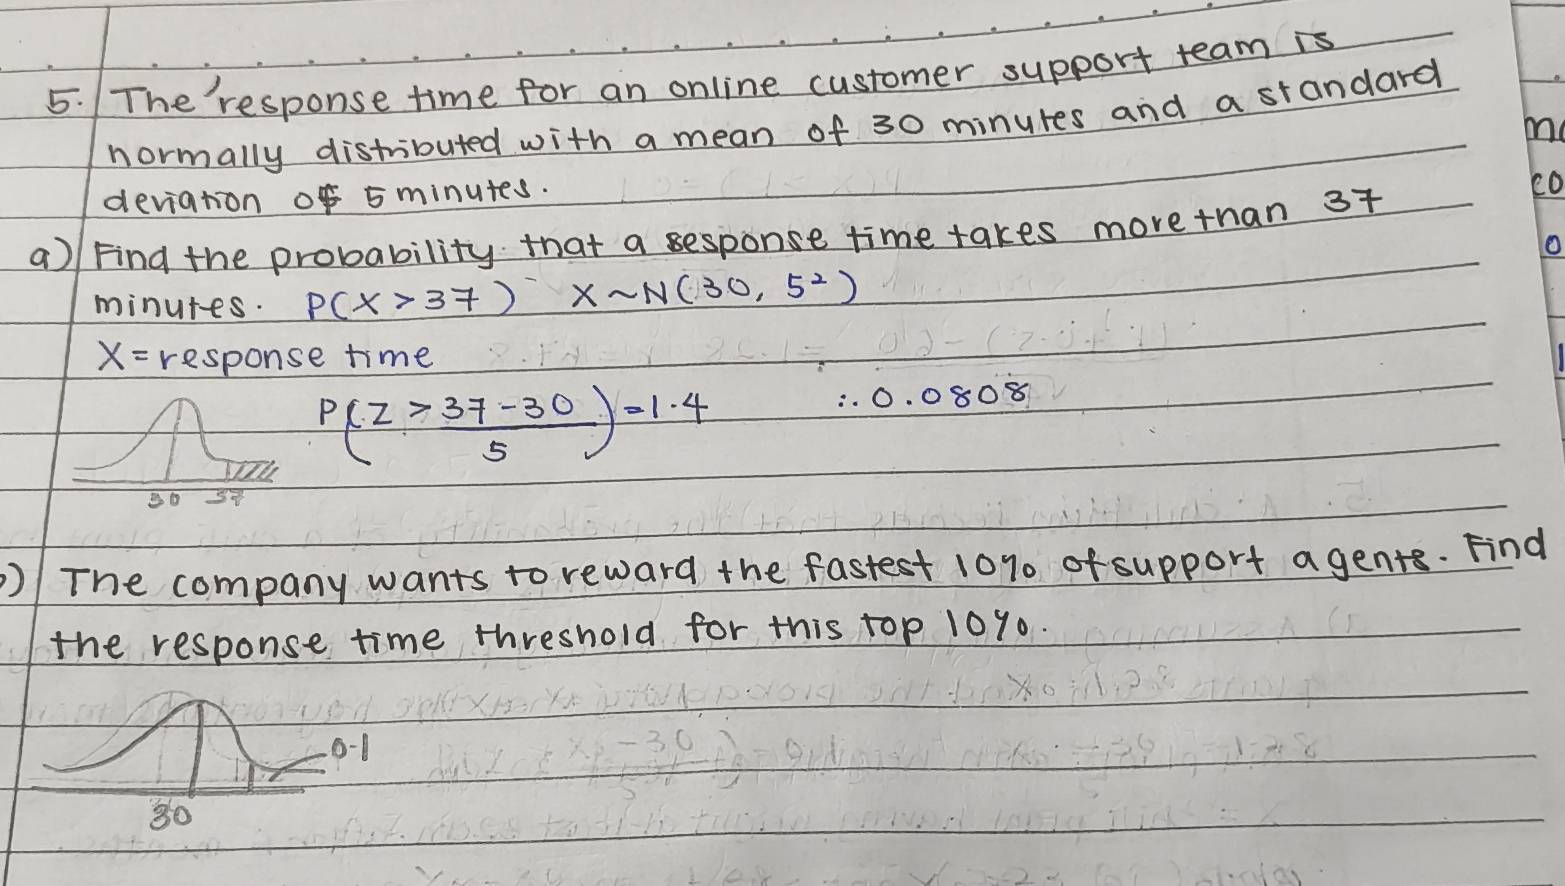 5. The response time for an online customer support team is
normally distributed with a mean of 30 minutes and a standard
deviation of 5 minutes.
a) Find the probability that a response time takes more than 37
minutes. P(X > 37) X ~ N(30, 5²)
X = response time
P(Z > 37-30/5) = 1.4 ∴ 0.0808
30 37
) The company wants to reward the fastest 10% of support agents. Find
the response time threshold for this top 10%.
0.1
30
m
co
0
1